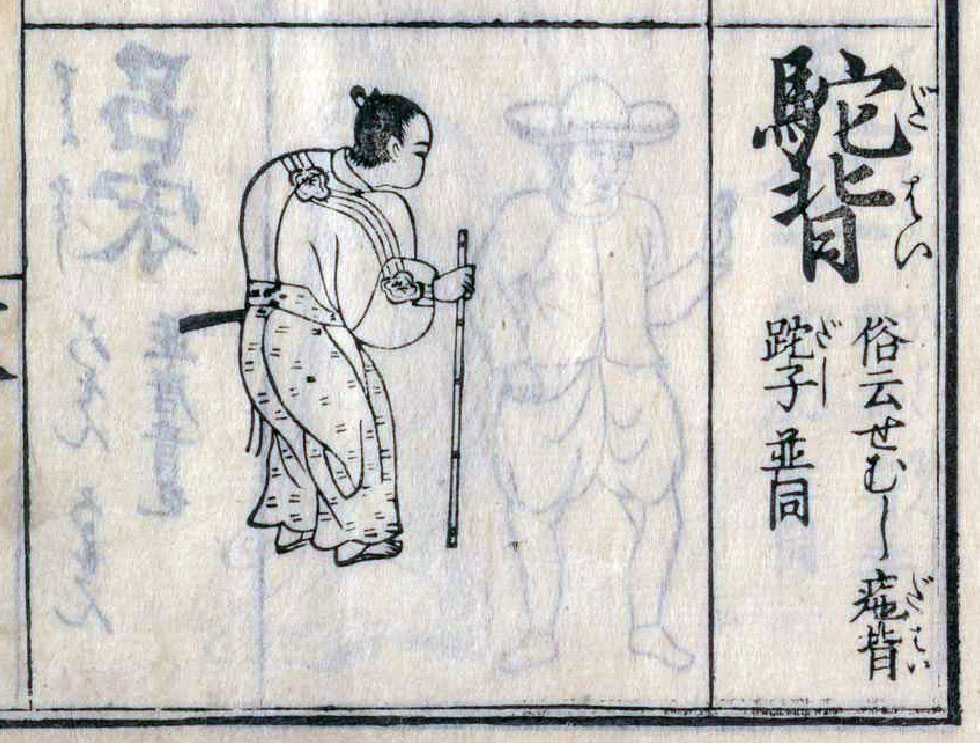 駝背
だはい
俗云せむし 背
だはい
跎子 並同
だし